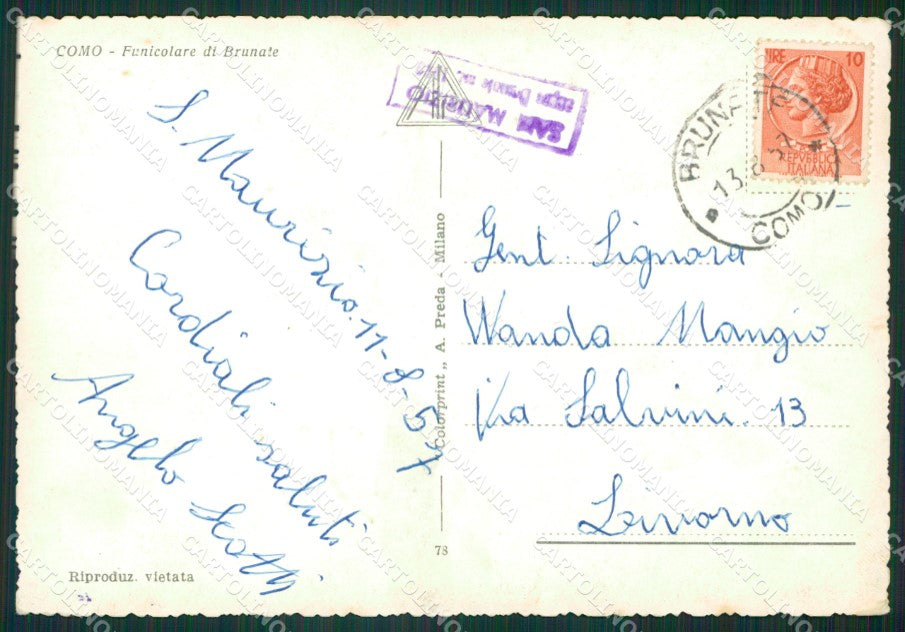 COMO - Funicolare di Brunate
S. Maurizio. 11-8-57
Cordiali saluti
Angelo Scotti
Riproduz. vietata
„Colorprint„ A. Preda - Milano
78
SAN MAURIZIO
sopra Brunate
BRUNATE
13 8 57
COMO
LIRE 10
REPUBBLICA
ITALIANA
Gent. Signora
Wanda Mangio
Via Salvini. 13
Livorno
CARTOLINOMANIA